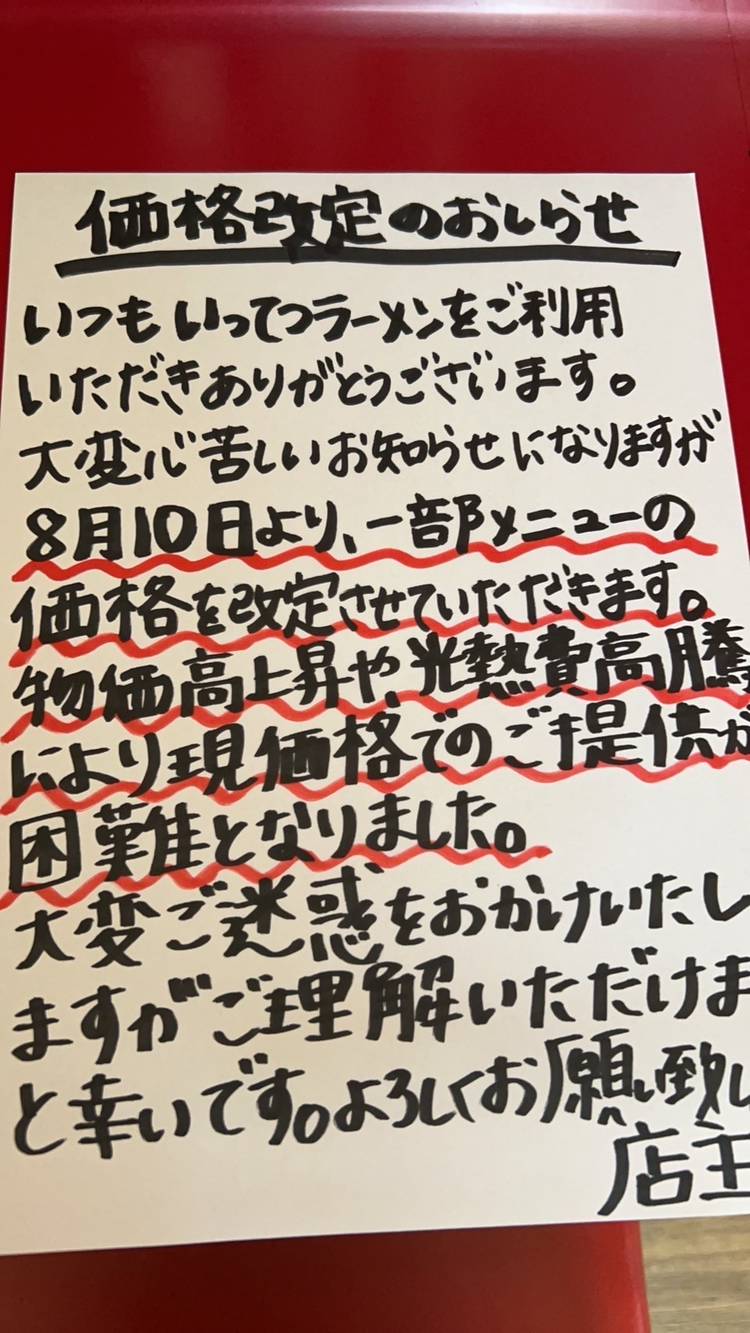 価格改定のおしらせ
いつもいってつラーメンをご利用
いただきありがとうございます。
大変心苦しいお知らせになりますが
8月10日より、一部メニューの
価格を改定させていただきます。
物価高上昇や、光熱費高騰
により現価格でのご提供が
困難となりました。
大変ご迷惑をおかけいたし
ますがご理解いただけま
と幸いです。よろしくお願い致し
店主